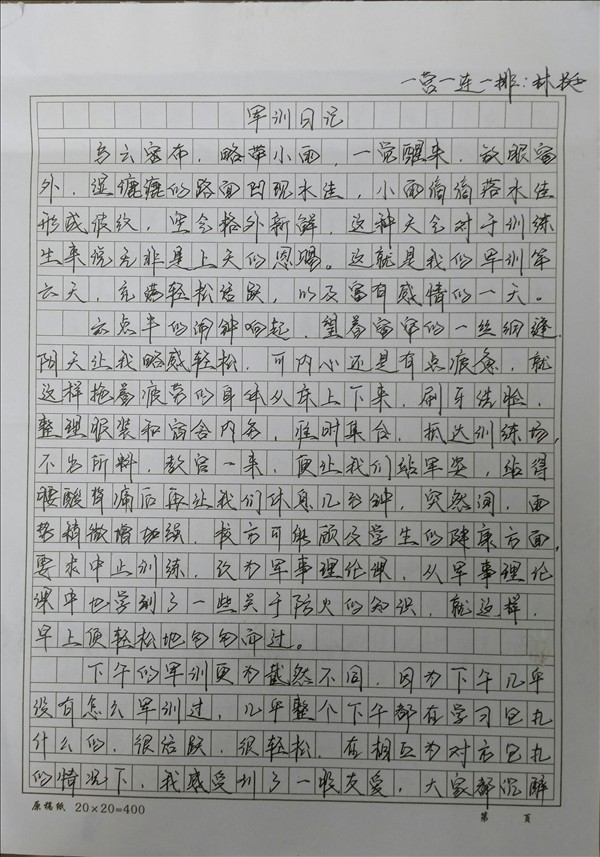 一营一连一排：林挺
军训日记
乌云密布，略带小雨，一觉醒来，放眼窗
外，湿漉漉的路面凹现水洼，小雨滴滴落水洼
形成波纹，空气格外新鲜，这种天气对于训练
生来说无非是上天的恩赐。这就是我的军训第
六天，充满轻松活跃，以及富有感情的一天。
六点半的闹钟响起，望着窗帘的一丝细缝，
阴天让我略感轻松，可内心还是有点疲惫，就
这样拖着疲劳的身体从床上下来，刷牙洗脸，
整理服装和宿舍内务，准时集合，抵达训练场，
不出所料，教官一来，便让我们站军姿，站得
腰酸背痛后再让我们休息几分钟，突然间，雨
势稍微增加强，校方可能顾及学生的健康方面，
要求中止训练，改为军事理论课，从军事理论
课中也学到了一些关于防火的知识，就这样，
早上便轻松地匆匆而过。
下午的军训更为截然不同，因为下午几乎
没有怎么军训过，几乎整个下午都在学习包扎
什么的，很活跃，很轻松，在相互为对方包扎
的情况下，我感受到了一股友爱，大家都沉醉
原稿纸 20×20=400 第 页